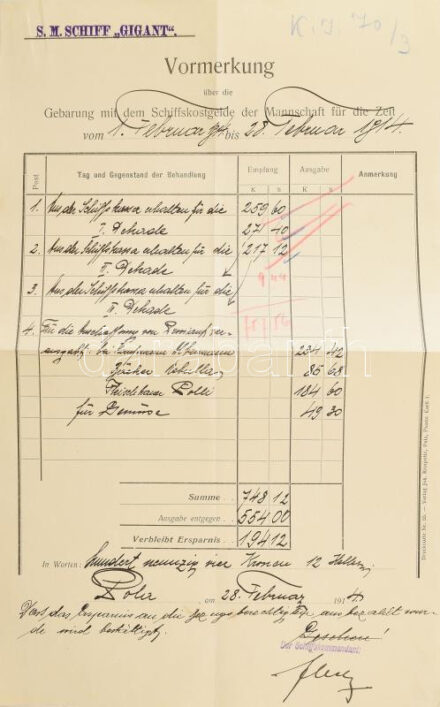 S. M. SCHIFF „GIGANT“.
K. J. 70/3
Vormerkung
über die
Gebarung mit dem Schiffskostgelde der Mannschaft für die Zeit
vom 1. Februar 914 bis 28. Februar 1914.
Post Tag und Gegenstand der Behandlung Empfang Ausgabe Anmerkung
K h K h
1. Aus der Schiffskassa erhalten für die 259 60
I. Dekade 271 40
2. Aus der Schiffskassa erhalten für die 217 12
II. Dekade
3. Aus der Schiffskassa erhalten für die
II. Dekade
4. Für die Anschaffung von Proviant ver-
ausgabt: bei Kaufmann 234 42
Bäcker 85 68
Fleischhauer Polli 184 60
für Gemüse 49 30
Summe . . 748 12
Ausgabe entgegen . . 554 00
Verbleibt Ersparnis . . 194 12
In Worten: hundert neunzig vier Kronen 12 Heller
Pola am 28. Februar 1914
Dass das Ersparnis an die bezugsberechtigten ausbezahlt wur-
de wird bestätigt.
Gesehen!
Der Schiffskommandant:
Drucksorte Nr.
darabanth